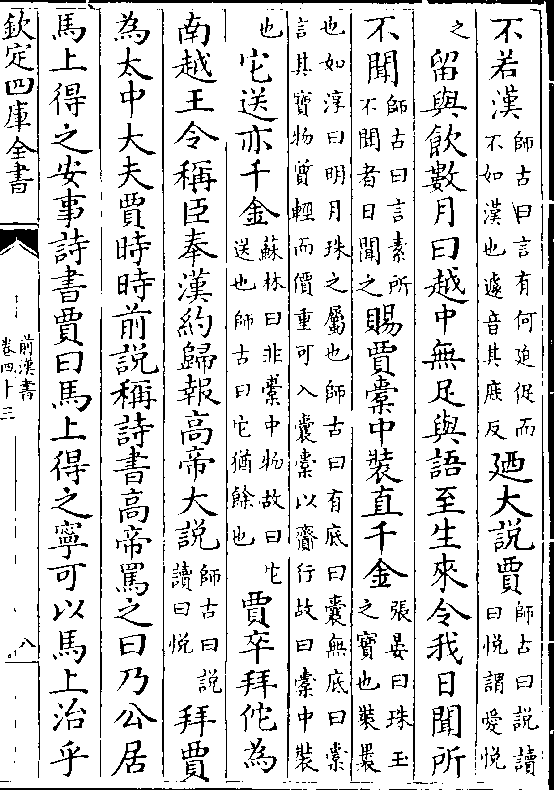 不若漢師古曰言有何廹促而
不如漢也遽音其庶反廼大說賈師古曰說讀
曰悅謂愛悅
之留與飲數月曰越中無足與語至生來令我日聞所
不聞師古曰言素所
不聞者日聞之賜賈橐中裝直千金張晏曰珠玉
之寶也裝裹
也如淳曰明月珠之屬也師古曰有底曰囊無底曰橐
言其寶物質輕而價重可入囊橐以齎行故曰橐中裝
也它送亦千金蘇林曰非橐中物故曰它
送也師古曰它猶餘也賈卒拜佗為
南越王令稱臣奉漢約歸報高帝大說師古曰說
讀曰悅拜賈
為太中大夫賈時時前說稱詩書高帝罵之曰乃公居
馬上得之安事詩書賈曰馬上得之寧可以馬上治乎
欽定四庫全書
前漢書
卷四十三
八